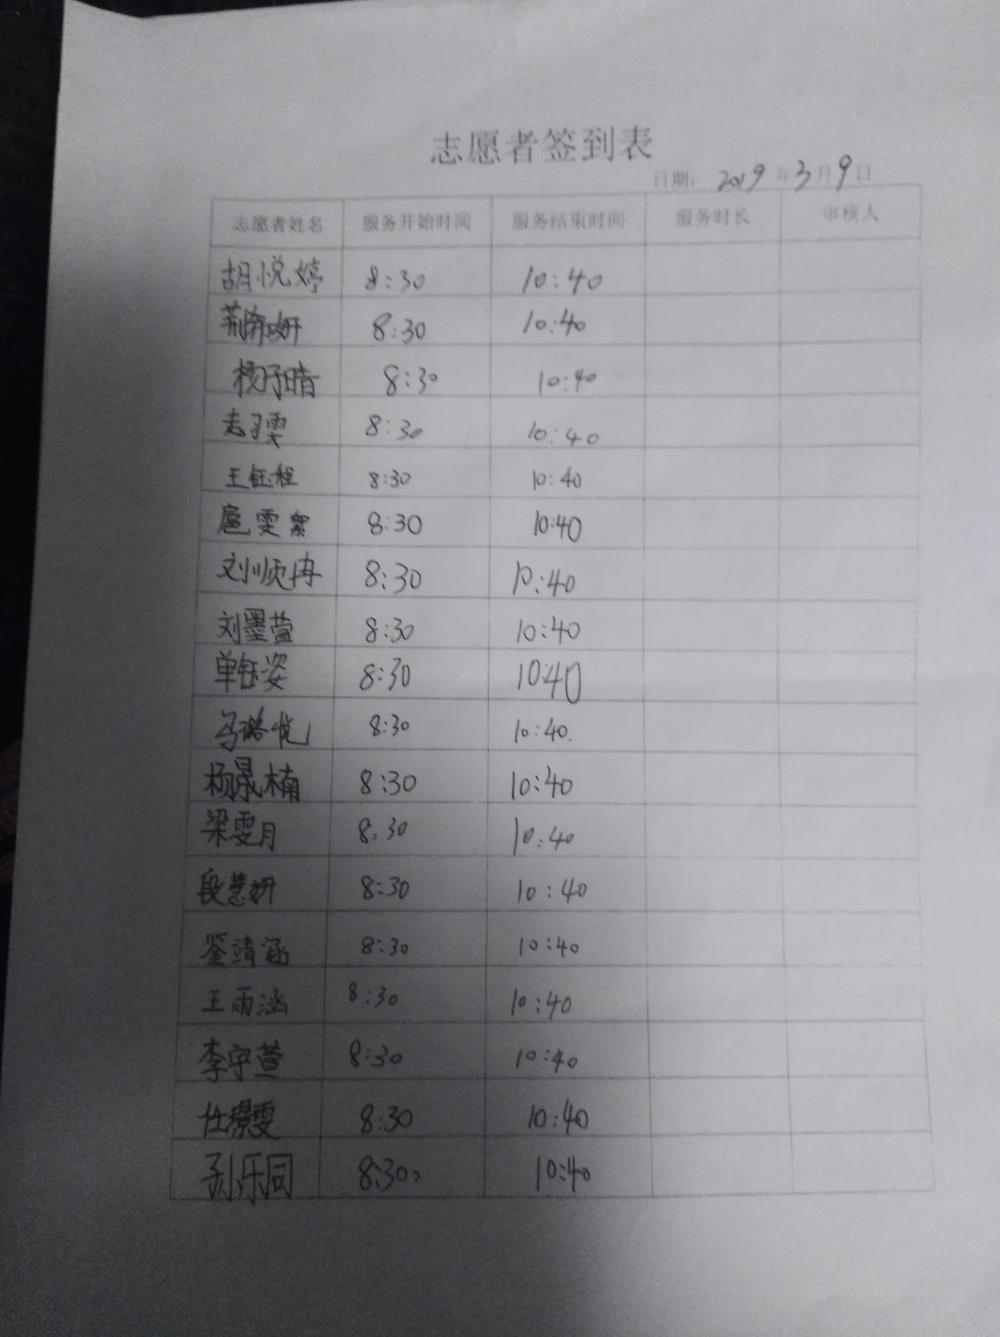 志愿者签到表
日期: 2019年3月9日
志愿者姓名 服务开始时间 服务结束时间 服务时长 审核人
胡悦婷 8:30 10:40
8:30 10:40
杨子晴 8:30 10:40
8:30 10:40
王钰程 8:30 10:40
扈雯絮 8:30 10:40
刘顺冉 8:30 10:40
刘墨萱 8:30 10:40
单钰姿 8:30 10:40
马璐悦 8:30 10:40.
杨晟楠 8:30 10:40
梁雯月 8:30 10:40
段慧妍 8:30 10:40
靖涵 8:30 10:40
王雨涵 8:30 10:40
李宇萱 8:30 10:40
8:30 10:40
孙乐同 8:30 10:40